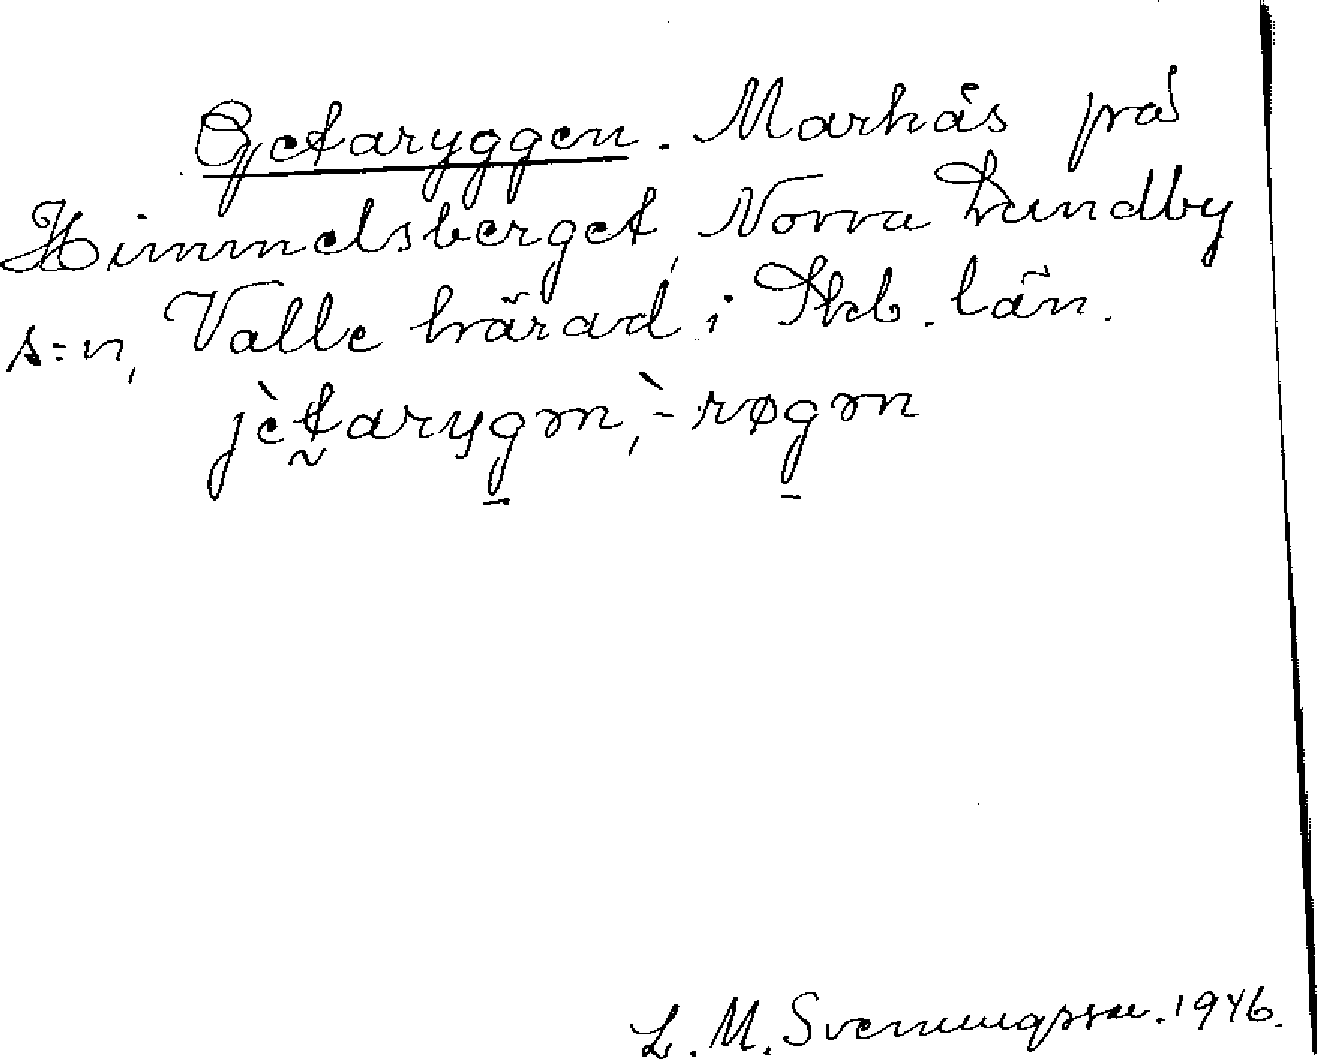 Getaryggen. Markås på
Himmelsberget, Norra Lundby
s:n, Valle härad i Skb. län.
jètarygən, -̀røgən
L. M. Svenungsson. 1946.